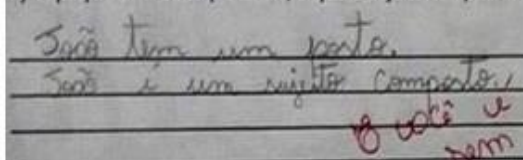 João tem um porto.
João é um sujeito composto,
é você é
sem